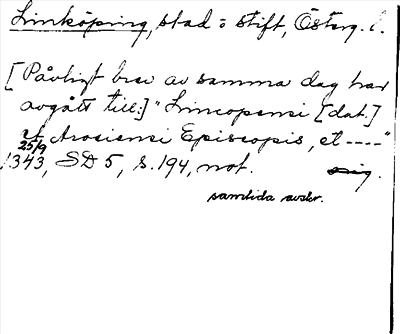 Linköping, stad o stift, Österg. l.
[Påvligt brev av samma dag har
avgått till:] "Lincopensi [dat.]
et Arosiensi Episcopis, et ----"
25/9
1343, SD 5, s. 194, not. orig.
samtida avskr.